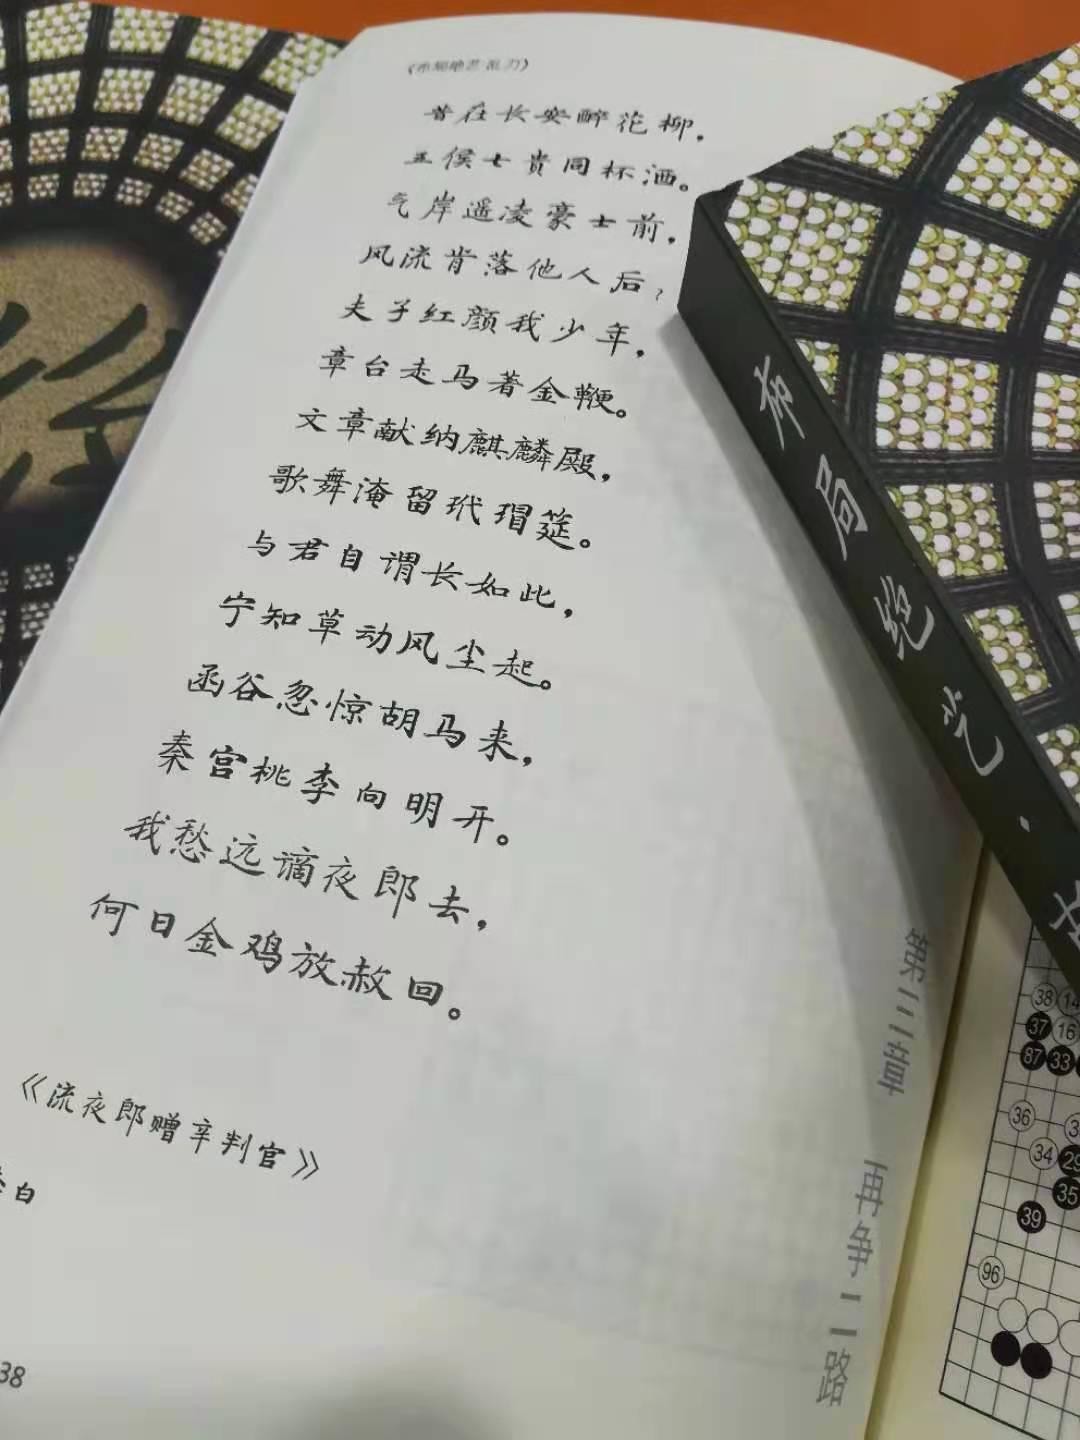 《布局绝艺·乱刀》
昔在长安醉花柳，
五侯七贵同杯酒。
气岸遥凌豪士前，
风流肯落他人后？
夫子红颜我少年，
章台走马著金鞭。
文章献纳麒麟殿，
歌舞淹留玳瑁筵。
与君自谓长如此，
宁知草动风尘起。
函谷忽惊胡马来，
秦宫桃李向明开。
我愁远谪夜郎去，
何日金鸡放赦回。
《流夜郎赠辛判官》
白
38
布局绝艺·
第三章 再争二路
38 14
37 16
87 33
36
34 29
35
39
96